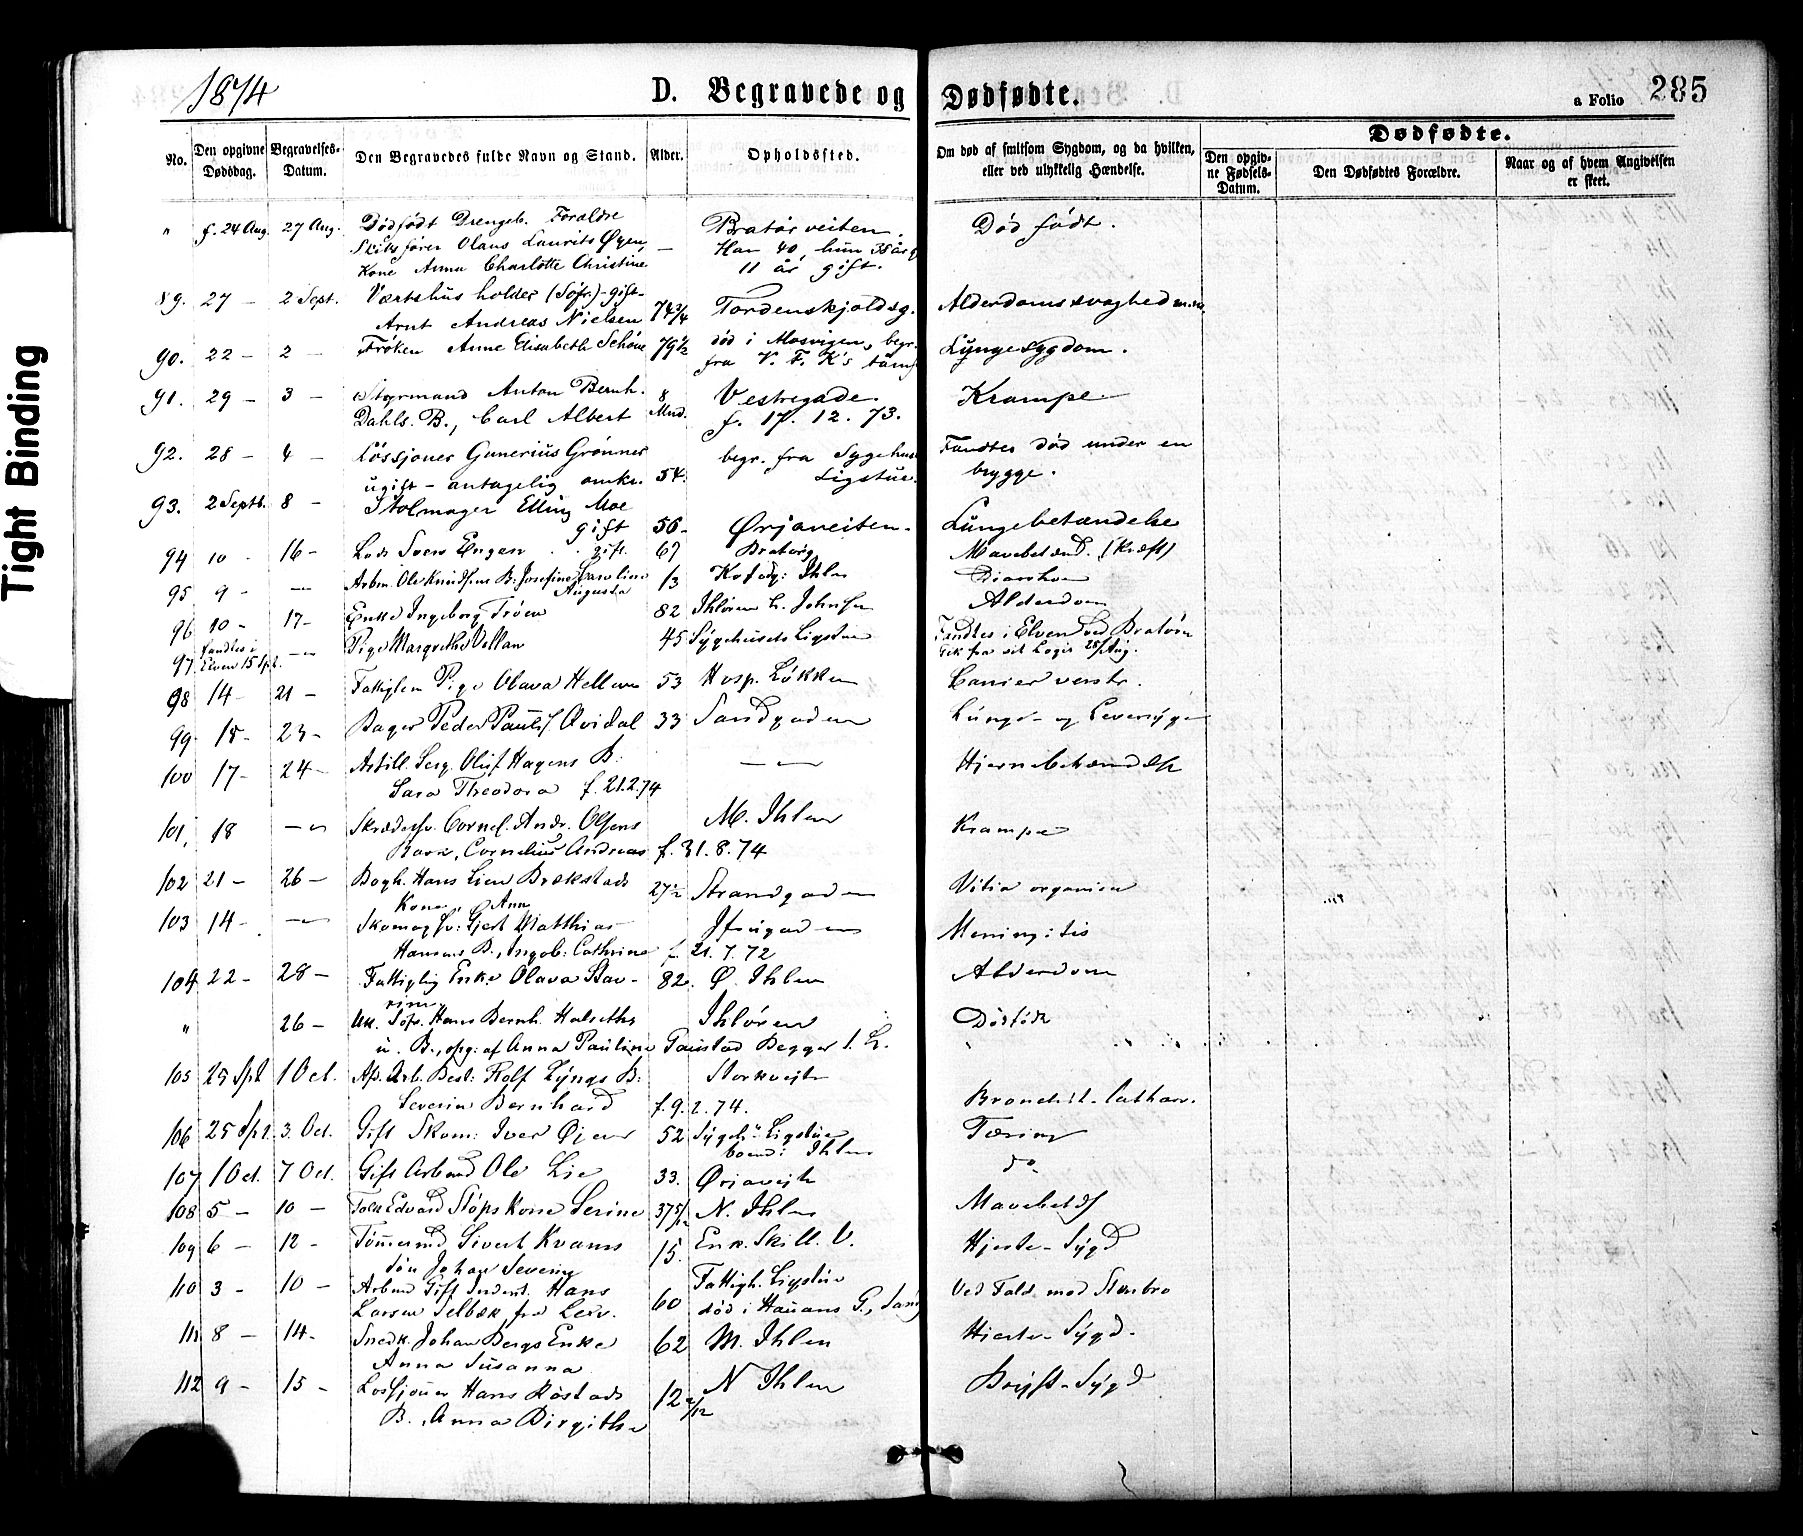 Tight Binding
1874
D. Begravede og Dødfødte.
a Folio 285
Dødfødte.
No.
Den opgivne Dødsdag.
Begravelses-Datum.
Den Begravedes fulde Navn og Stand.
Alder.
Opholdssted.
Om død af smitsom Sygdom, og da hvilken, eller ved ulykkelig Hændelse.
Den opgivne Fødsels-Datum.
Den Dødfødtes Forældre.
Naar og af hvem Angivelsen er skeet.
" f. 24 Aug. 27 Aug. Dødfødt Drengeb. Forældre Bratørveiten. Død født.
Skibsfører Olaus Laurits Øyen — Han 40, hun 38 år g
Kone Anna Charlotte Christine 11 år gift.
89. 27 – 2 Sept. Værtshusholder (Søfr.) – gift – 74 3/4 Tordenskjoldsg. Alderdomssvaghed m.m.
Arnt Andreas Nielsen
90. 22 – 2 – Frøken Anne Elisabeth Schöne 79 1/2 død i Mosvigen, begr. Lungesygdom.
fra V. F. K's
91. 29 – 3 – Styrmand Anton Bernh. 8 Mnd. Vestregade. Krampe
Dahls B., Carl Albert f. 17. 12. 73.
92. 28 – 4 – Løssjouer Gunerius Grønner begr. fra Sygehus Fandtes død under en
ugift – antagelig omkr. 54. Ligstue. brygge.
93. 2 Septb. 8 – Stolmager Elling Moe
gift 56 – Ørjaveiten. Lungebetændelse
94 10 – 16 – Lods Sven Engen gift. 67 Bratørg Mavebetænd. (Kræft)
95 9 – — Arbm Ole Knudsens B: Josefine Caroline 13 Ihlen Diarrhoe
Augusta
96 10 – 17 – Enke Ingeborg Trøen 82 Ihløren h. Johnsen Alderdom
97 fandtes i Elven 15 Spt. — Pige Margrethe Vellan 45 Sygehusets Ligstue Fandtes i Elven ved Bratøren
Gik fra sit Logis 28/Aug.
98 14 – 21 – Fattiglem Pige Olava Hellem 53 Hosp. Løkken
99 15 – 23 – Bager Peder Pauls. Qvidal 33 Sandgaden Lunge- og Leversyge
100 17 – 24 – Artill. Serg. Oluf Hagens B: — Hjernebetændelse
Sara Theodora f. 21.2.74
101, 18 — Skrædersv. Cornel. Andr. Olsens M. Ihlen Krampe
Barn, Cornelius Andreas f. 31.8.74
102 21 – 26 – Bogh. Hans Lien Brækstads 27 1/2 Strandgaden Vitia organica
Kone, Ann
103 14 – — Skomagsv: Gjert Matthias Meningitis
Hansens B., Ingeb: Cathrine f. 21.7.72
104 22 – 28 – Fattiglig Enke Olava Stav- 82. Ø. Ihlen Alderdom
rim.
" 26 – Uk. Søfr. Hans Bernh. Halseths Ihløren Dødfødt
u. B., opg: af Anna Pauline Gaustad Begger 1. L.
105 25 Spt 1 Oct. Afs. Arb. Best: Rolf Lyngs B: Storkveit Bronchit. Cathar.
Severin Bernhard f. 9. 2. 74.
106 25 Spt. 3. Oct. Gift Skom: Iver Øien 52 Sygeh. Ligstue Tæring
boend: Ihlen
107 1 Oct. 7 Oct. Gift Arbmd Ole Lie 33. Ørjaveit do
108 5 – 10 – Edvard Støps Kone Serine 37 5/12 N. Ihlen Mavebetds
109 6 – 12 – Tømmermd Sivert Kvams 15. Enk. Skill. V. Hjerte-Sygd
Søn Johan Severin
110 3 – 10 – Arbmd Gift Indent. Hans 60 Fattigh. Ligstue Ved Fald. mod Stenbro
Larsen Selbæk fra Lexv. død i Hauans G.,
111 8 – 14 – Snedk. Johan Bergs Enke 62 M. Ihlen Hjerte-Sygd.
Anna Susanna
112 9 – 15 – Løssjouer Hans Røstads 12 2/12 N Ihlen Bryst-Sygd
B., Anna Birgitha